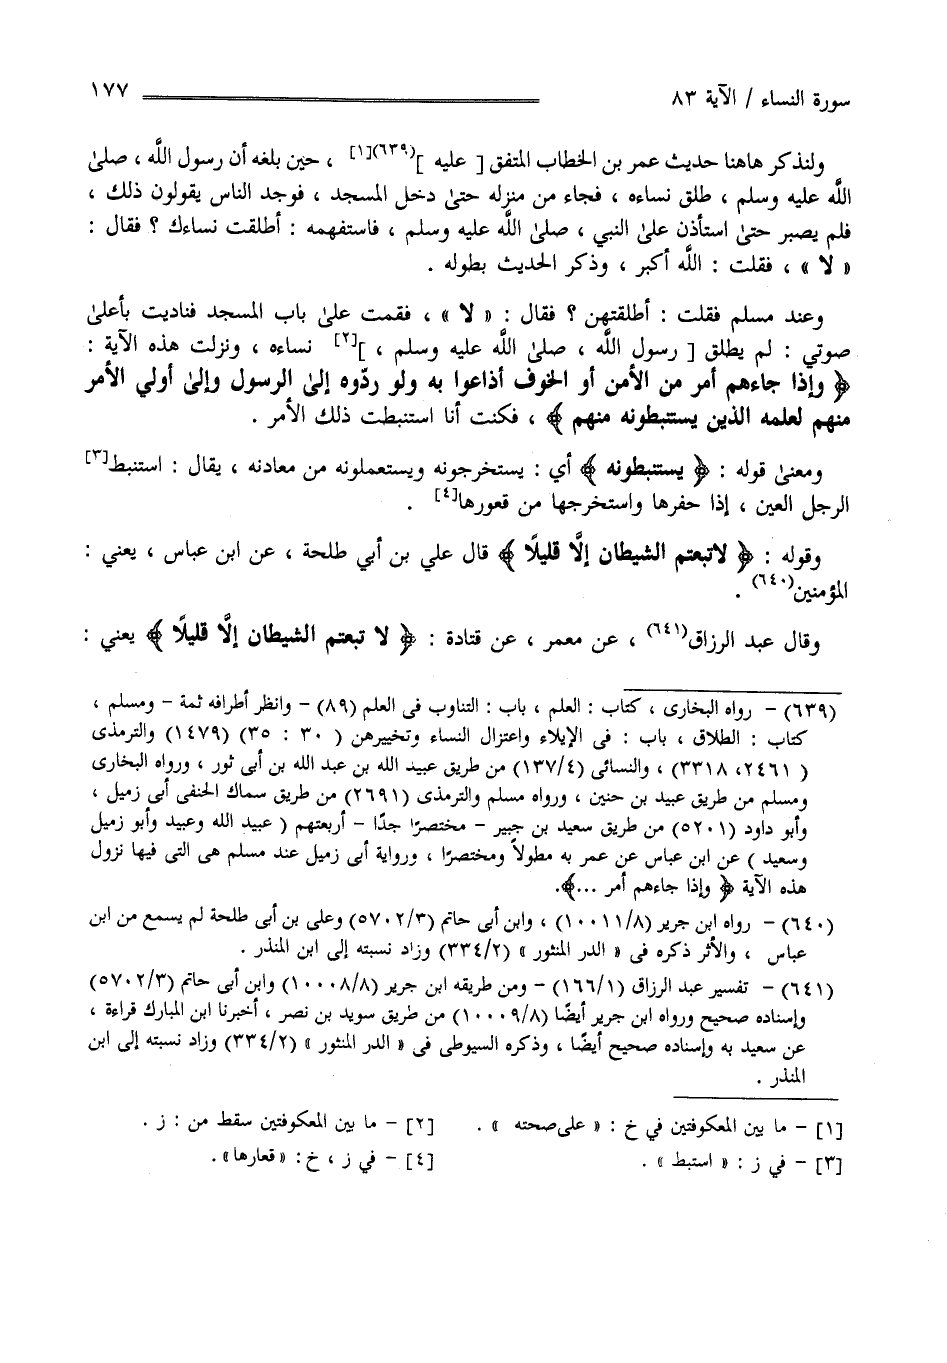 سورة النساء / الآية ٨٣ ١٧٧
ولنذكر هاهنا حديث عمر بن الخطاب المتفق [ عليه ](٦٣٩)[١] ، حين بلغه أن رسول اللَّه ، صلىٰ
اللَّه عليه وسلم ، طلق نساءه ، فجاء من منزله حتىٰ دخل المسجد ، فوجد الناس يقولون ذلك ،
فلم يصبر حتىٰ استأذن علىٰ النبي ، صلىٰ اللَّه عليه وسلم ، فاستفهمه : أطلقت نساءك ؟ فقال :
« لا » ، فقلت : اللَّه أكبر ، وذكر الحديث بطوله .
وعند مسلم فقلت : أطلقتهن ؟ فقال : « لا » ، فقمت علىٰ باب المسجد فناديت بأعلىٰ
صوتي : لم يطلق [ رسول اللَّه ، صلىٰ اللَّه عليه وسلم ، ][٢] نساءه ، ونزلت هذه الآية :
﴿ وإذا جاءهم أمر من الأمن أو الخوف أذاعوا به ولو ردّوه إلىٰ الرسول وإلىٰ أولي الأمر
منهم لعلمه الذين يستنبطونه منهم ﴾ ، فكنت أنا استنبطت ذلك الأمر .
ومعنىٰ قوله : ﴿ يستنبطونه ﴾ أي : يستخرجونه ويستعملونه من معادنه ، يقال : استنبط[٣]
الرجل العين ، إذا حفرها واستخرجها من قعورها[٤] .
وقوله : ﴿ لاتبعتم الشيطان إلَّا قليلًا ﴾ قال علي بن أبي طلحة ، عن ابن عباس ، يعني :
المؤمنين(٦٤٠) .
وقال عبد الرزاق(٦٤١) ، عن معمر ، عن قتادة : ﴿ لا تبعتم الشيطان إلَّا قليلًا ﴾ يعني :
(٦٣٩) – رواه البخارى ، كتاب : العلم ، باب : التناوب فى العلم (٨٩) – وانظر أطرافه ثمة – ومسلم ،
كتاب : الطلاق ، باب : فى الإيلاء واعتزال النساء وتخييرهن ( ٣٠ : ٣٥) (١٤٧٩) والترمذى
( ٢٤٦١، ٣٣١٨) ، والنسائى (١٣٧/٤) من طريق عبيد الله بن عبد الله بن أبى ثور ، ورواه البخارى
ومسلم من طريق عبيد بن حنين ، ورواه مسلم والترمذى (٢٦٩١) من طريق سماك الحنفى أبى زميل ،
وأبو داود (٥٢٠١) من طريق سعيد بن جبير – مختصرًا جدًا – أربعتهم ( عبيد الله وعبيد وأبو زميل
وسعيد ) عن ابن عباس عن عمر به مطولاً ومختصرًا ، ورواية أبى زميل عند مسلم هى التى فيها نزول
هذه الآية ﴿ وإذا جاءهم أمر ...﴾.
(٦٤٠) – رواه ابن جرير (١٠٠١١/٨) ، وابن أبى حاتم (٥٧٠٢/٣) وعلى بن أبى طلحة لم يسمع من ابن
عباس ، والأثر ذكره فى « الدر المنثور » (٣٣٤/٢) وزاد نسبته إلى ابن المنذر .
(٦٤١) – تفسير عبد الرزاق (١٦٦/١) – ومن طريقه ابن جرير (١٠٠٠٨/٨) وابن أبى حاتم (٥٧٠٢/٣)
وإسناده صحيح ورواه ابن جرير أيضًا (١٠٠٠٩/٨) من طريق سويد بن نصر ، أخبرنا ابن المبارك قراءة ،
عن سعيد به وإسناده صحيح أيضًا ، وذكره السيوطى فى « الدر المنثور » (٣٣٤/٢) وزاد نسبته إلى ابن
المنذر .
[١] – ما بين المعكوفتين في خ : « على صحته » . [٢] – ما بين المعكوفتين سقط من : ز .
[٣] – في ز : « استبط » . [٤] – في ز ، خ : « قعارها » .